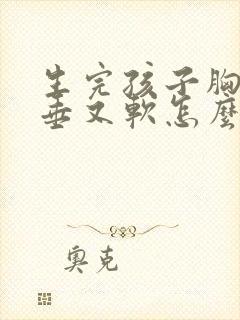 生完孩子胸
垂又软怎麼
奥克